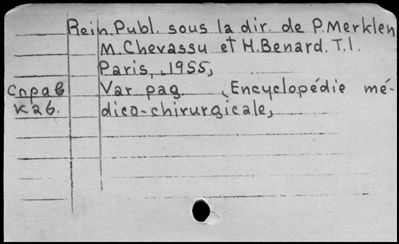 Rein. Publ. sous la dir. de P. Merklen
M. Chevassu et H. Benard. T. I.
Paris, 1955,
Справ Var. pag. , Encyclopédie mé-
каб. dico-chirurgicale,